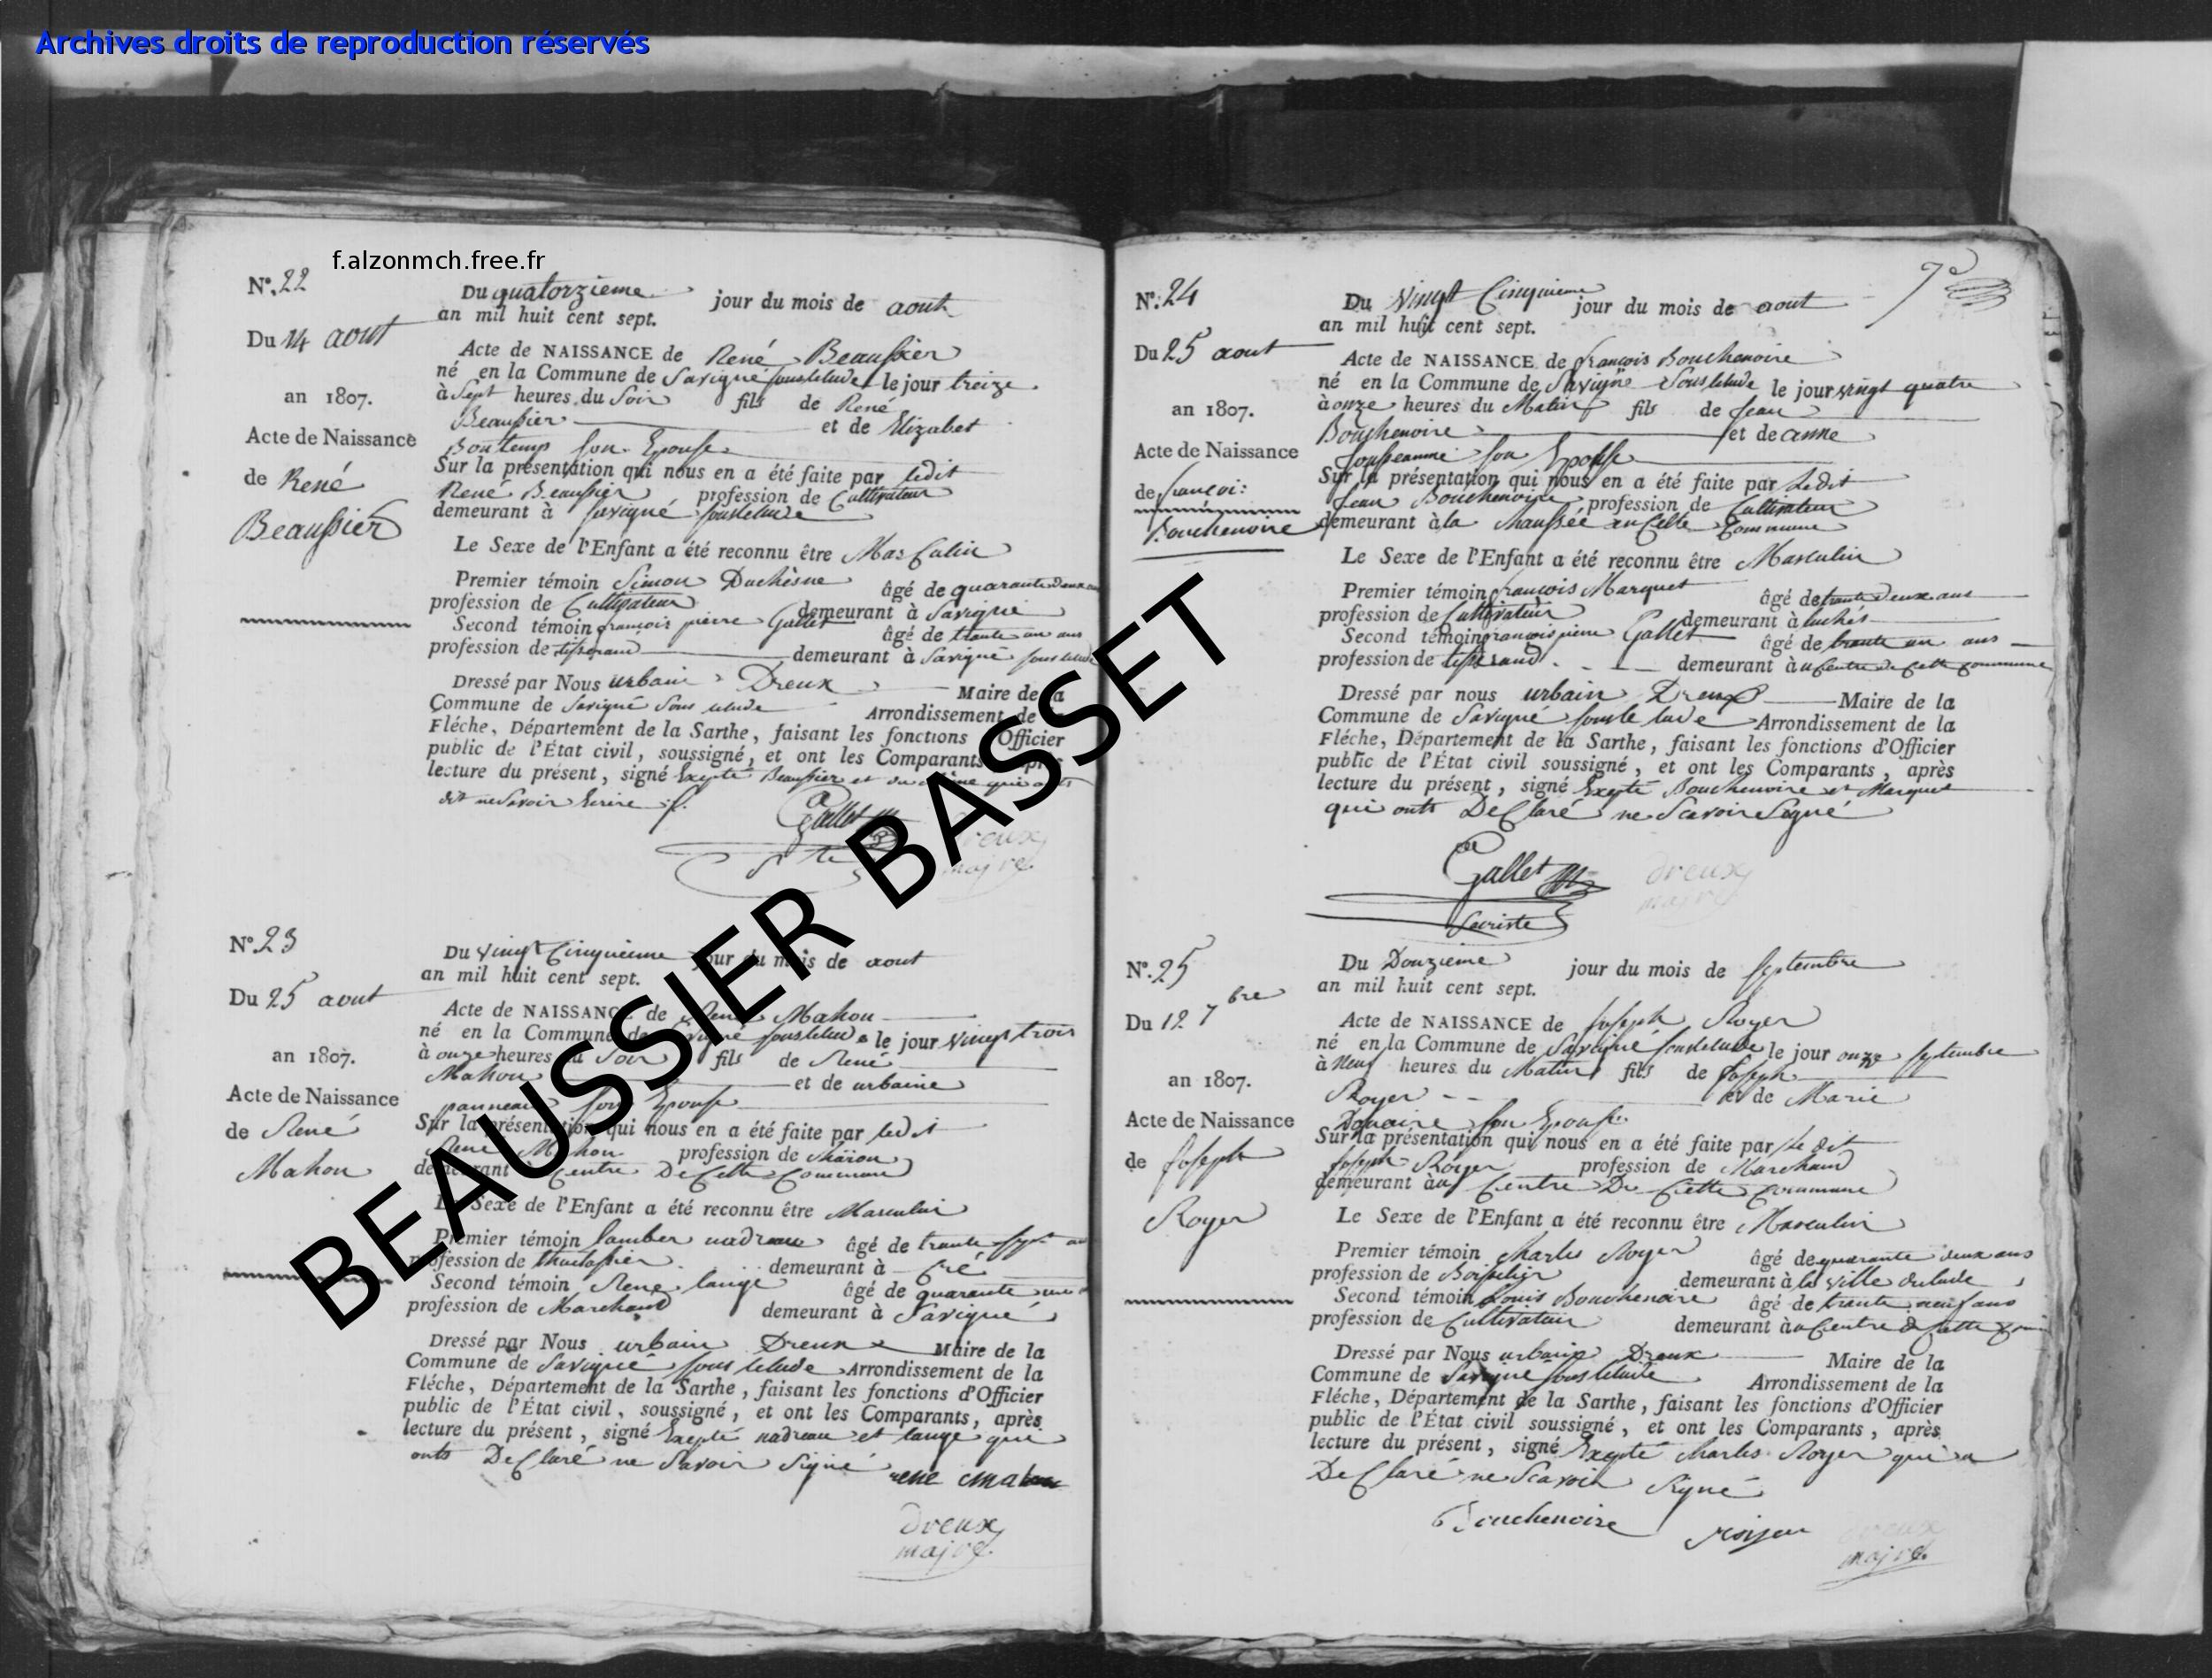 Archives droits de reproduction réservés
f.alzonmch.free.fr
BEAUSSIER BASSET
N°. 22
Du 14 aout
an 1807.
Acte de Naissance
de René
Beaussier
Du quatorzieme jour du mois de aout
an mil huit cent sept.
Acte de NAISSANCE de René Beaussier
né en la Commune de Savigné sous le lude le jour treize
à Sept heures du Soir fils de René
Beaussier et de Elizabet
Bontemps son Epouse
Sur la présentation qui nous en a été faite par ledit
René Beaussier profession de Cultivateur
demeurant à Savigné sous le lude
Le Sexe de l'Enfant a été reconnu être Masculin
Premier témoin Simon Duchesne âgé de quarante deux ans
profession de Cultivateur demeurant à Savigné
Second témoin françois pierre Gallet âgé de trante un ans
profession de tisserand demeurant à Savigné sous le lude
Dressé par Nous urbain Dreux Maire de la
Commune de Savigné Sous lelude Arrondissement de la
Fléche, Département de la Sarthe, faisant les fonctions d'Officier
public de l'État civil, soussigné, et ont les Comparants, après
lecture du présent, signé Excepté Beaussier et duchesne qui onts
dit ne Savoir Ecrire
Gallet
dreux
maire
N°. 23
Du 25 aout
an 1807.
Acte de Naissance
de René
Mahou
Du vingt Cinquieme jour du mois de aout
an mil huit cent sept.
Acte de NAISSANCE de René Mahou
né en la Commune de Savigné sous lelude le jour vingt trois
à onze heures du Soir fils de René
Mahou et de urbaine
panneau son Epouse
Sur la présentation qui nous en a été faite par ledit
René Mahou profession de
demeurant Centre De Cette Commune
Le Sexe de l'Enfant a été reconnu être Masculin
Premier témoin nadreau âgé de trante sept ans
profession de demeurant à Cré
Second témoin René lange âgé de quarante
profession de Marchand demeurant à Savigné
Dressé par Nous urbain Dreux Maire de la
Commune de Savigné sous lelude Arrondissement de la
Fléche, Département de la Sarthe, faisant les fonctions d'Officier
public de l'État civil, soussigné, et ont les Comparants, après
lecture du présent, signé Excepté nadreau et lange qui
onts DeClaré ne Savoir Signé
rene mahou
dreux
maire
7e
N°. 24
Du 25 aout
an 1807.
Acte de Naissance
de françois
Bouchenoire
Du Vingt Cinquieme jour du mois de aout
an mil huit cent sept.
Acte de NAISSANCE de françois Bouchenoire
né en la Commune de Savigné Sous lelude le jour vingt quatre
à onze heures du Matin fils de Jean
Bouchenoire et de anne
son Epouse
Sur la présentation qui nous en a été faite par Ledit
Jean Bouchenoire profession de Cultivateur
demeurant à la Chaussée en Cette Commune
Le Sexe de l'Enfant a été reconnu être Masculin
Premier témoin françois Marquet âgé de trante deux ans
profession de Cultivateur demeurant à luché
Second témoin françois pierre Gallet âgé de trante un ans
profession de tisserand demeurant à u Centre de Cette Commune
Dressé par nous urbain Dreux Maire de la
Commune de Savigné sous le lude Arrondissement de la
Fléche, Département de la Sarthe, faisant les fonctions d'Officier
public de l'État civil soussigné, et ont les Comparants, après
lecture du présent, signé Excepté Bouchenoire et Marquet
qui onts DeClaré ne Scavoir Signé
Gallet
dreux
maire
N°. 25
Du 12 7bre
an 1807.
Acte de Naissance
de Joseph
Royer
Du Douzieme jour du mois de Septembre
an mil huit cent sept.
Acte de NAISSANCE de Joseph Royer
né en la Commune de Savigné sous lelude le jour onze Septembre
à Neuf heures du Matin fils de Joseph
Royer et de Marie
son Epouse
Sur la présentation qui nous en a été faite par Le dit
Joseph Royer profession de Marchand
demeurant au Centre De Cette Commune
Le Sexe de l'Enfant a été reconnu être Masculin
Premier témoin Charles Royer âgé de quarante deux ans
profession de Boisselier demeurant à la ville du lude
Second témoin Louis Bouchenoire âgé de trante neuf ans
profession de Cultivateur demeurant à u Centre de Cette
Dressé par Nous urbain Dreux Maire de la
Commune de Savigné sous lelude Arrondissement de la
Fléche, Département de la Sarthe, faisant les fonctions d'Officier
public de l'État civil soussigné, et ont les Comparants, après
lecture du présent, signé Excepté Charles Royer qui a
DeClaré ne Scavoir Signé
Bouchenoire
dreux
maire